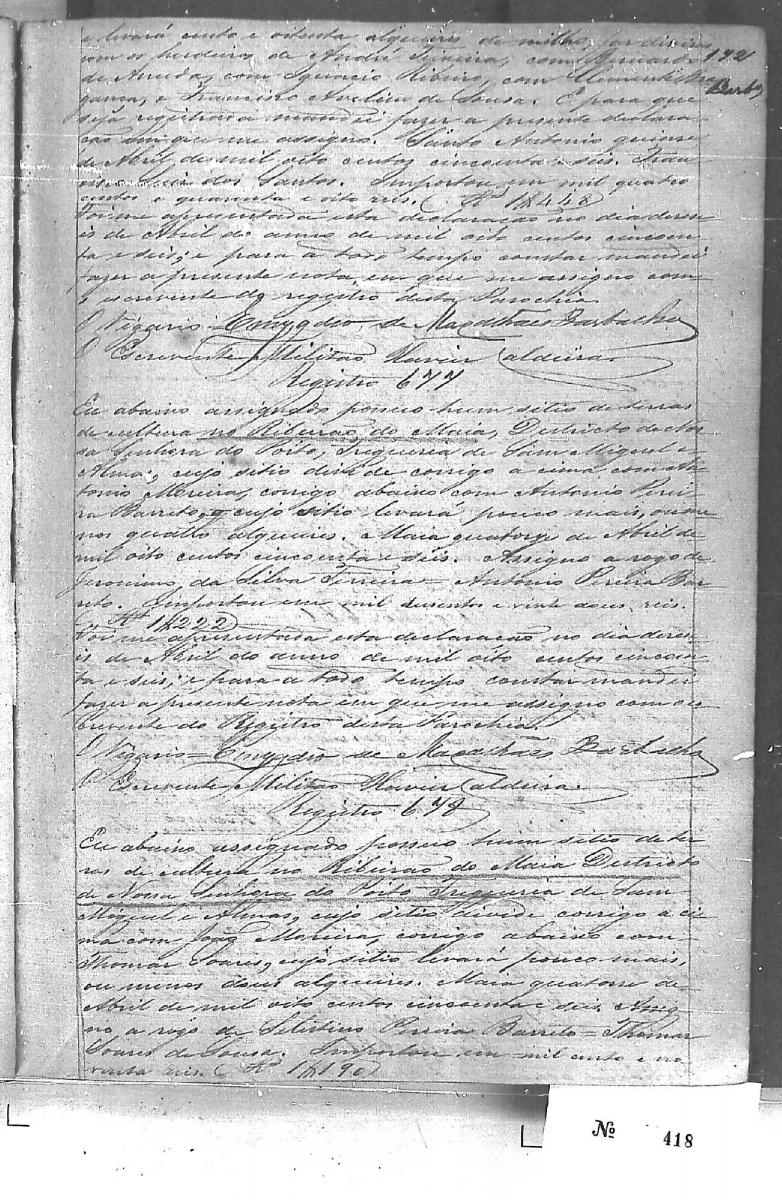 e levará cento e oitenta alqueires de milho, por divisa
com os herdeiros de André Ferreira, com Bernardo 172
de Arruda, com Ignacio Ribeiro, com Clemente Bra Barb.
gança, e Francisco Avelino de Sousa. E para que
seja registrada mandei fazer a presente declara
cão em que me assigno. Santo Antonio quinse
de Abril de mil oito centos cincoenta e seis. Fran
cisco dos Santos. Importou em mil quatro
centos e quarenta e oito reis. (Rs 1$448)
Foi me apresentada esta declaracão no dia deses
eis de Abril do anno de mil oito centos cincoen
ta e seis; e para a todo tempo constar mandei
fazer a presente nota em que me assigno com
o escrevente do registro desta Parochia
O Vigario = Emygdio de Magalhães Barbacho
O Escrevente Militão Xavier Caldeira
Registro 677
Eu abaixo assignado possuo hum sitio de terras
de cultura no Ribeirão do Maia, Districto de Nos
sa Senhora do Porto, Freguezia de Sam Miguel e
Almas, cujo sitio divide corrigo a cima com An
tonio Moreira, corrigo abaixo com Antonio Perei
ra Barreto, cujo sitio levará pouco mais, ou me
nos quatro alqueires. Maia quatorse de Abril de
mil oito centos cincoenta e seis. Assigno a rogo de
Jeronimo da Silva Ferreira = Antonio Pereira Bar
reto. Importou em mil dusentos e vinte dous reis.
(Rs 1$222)
Foi me apresentada esta declaracão no dia deses
eis de Abril do anno de mil oito centos cincoen
ta e seis; e para a todo tempo constar mandei
fazer a presente nota em que me assigno com o es
crevente do Registro desta Parochia.
O Vigario = Emygdio de Magalhães Barbacho
O Escrevente Militão Xavier Caldeira
Registro 678
Eu abaixo assignado possuo hum sitio de ter
ras de cultura no Ribeirão do Maia Districto
de Nossa Senhora do Porto Freguezia de Sam
Miguel e Almas, cujo sitio divide corrigo a ci
ma com João Moreira, corrigo abaixo com
Thomaz Soares, cujo sitio levará pouco mais,
ou menos dous alqueires. Maia quatorse de
Abril de mil oito centos cincoenta e seis Assig
no a rogo de Pereira Barreto = Thomaz
Soares de Sousa. Importou em mil cento e no
venta reis. (Rs 1$190)
Nº 418